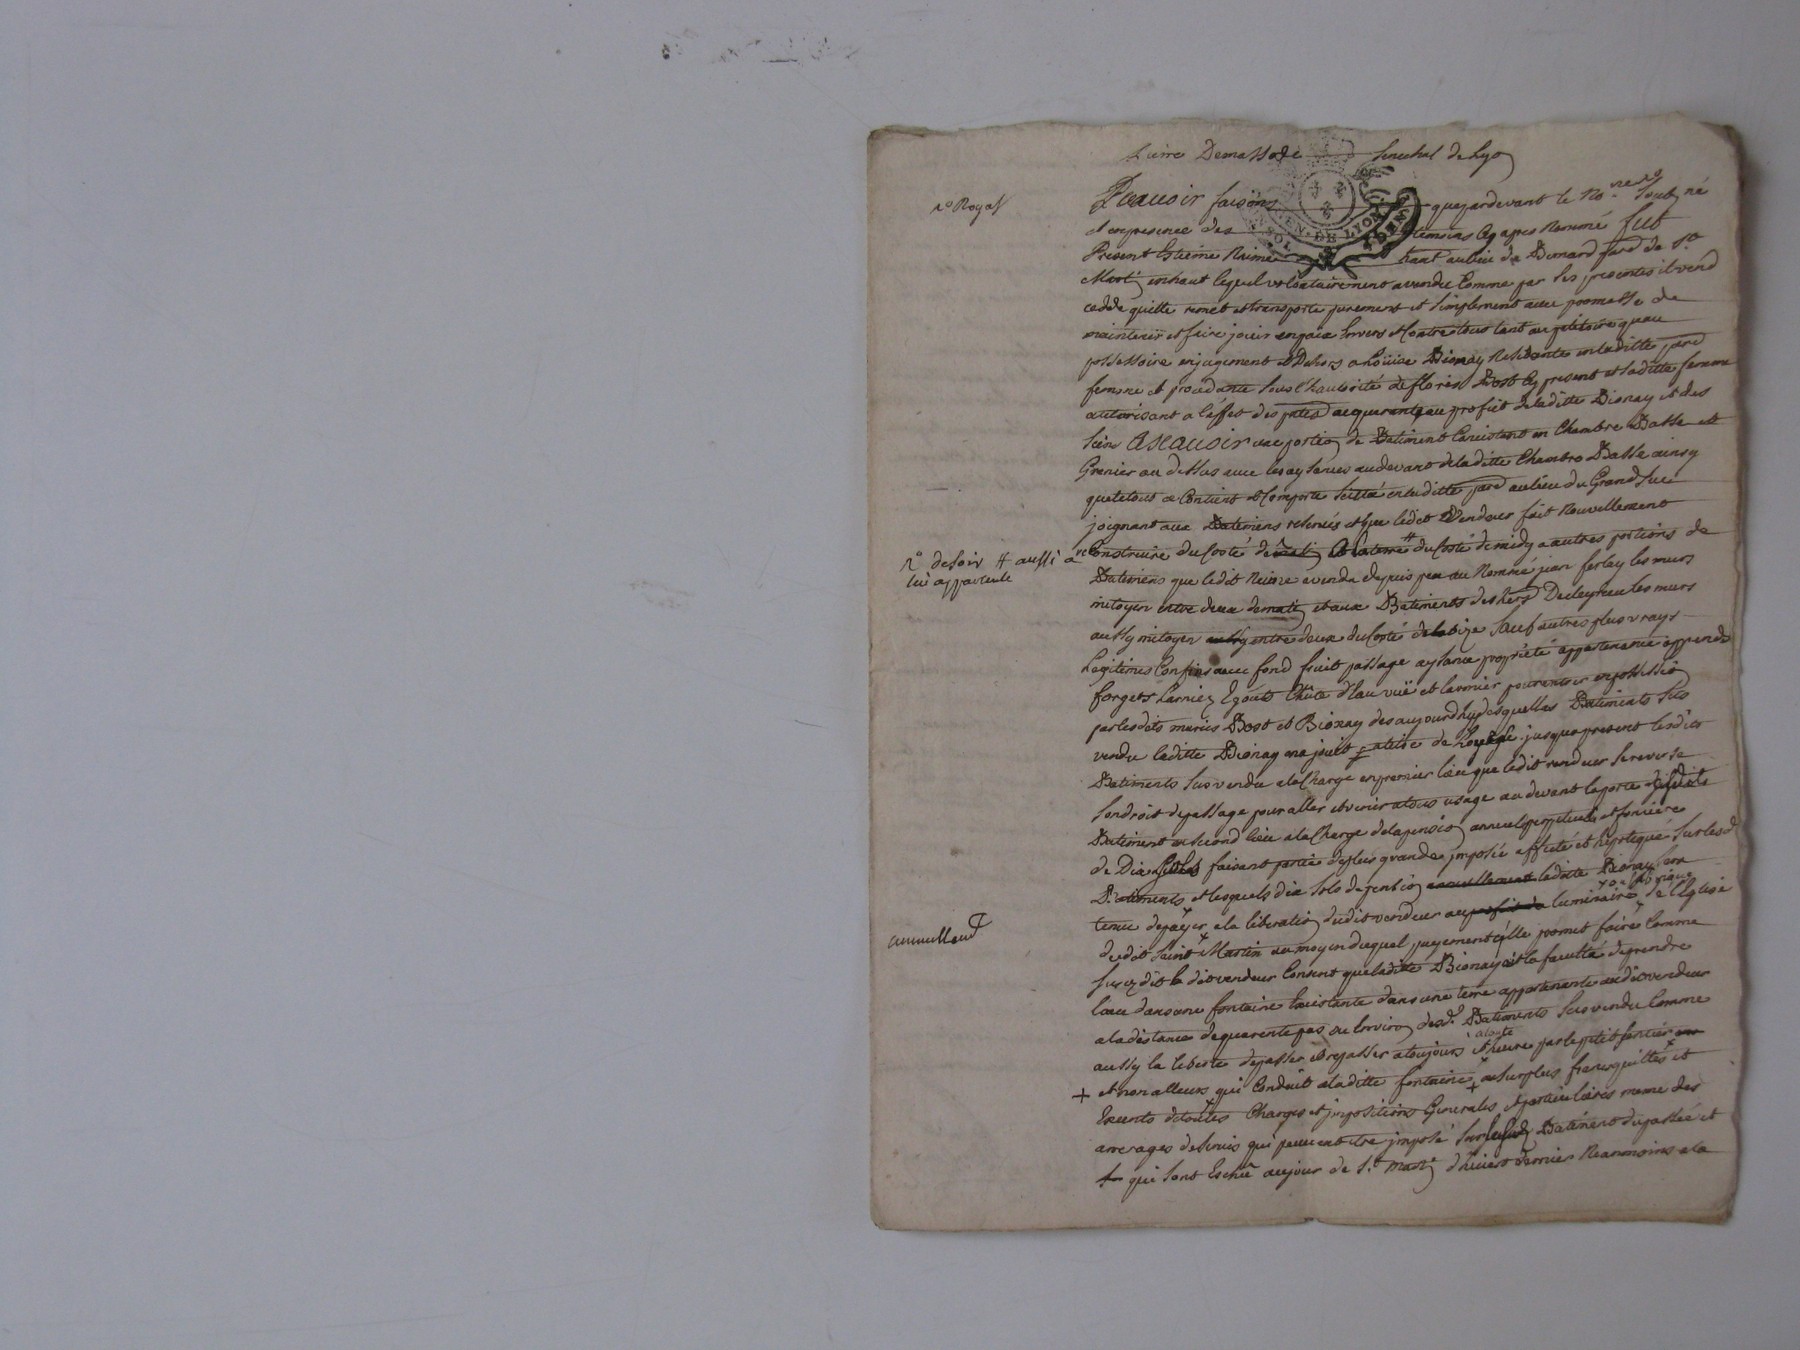 Pierre Demassode Senechal de Lyon
Scauoir faisons que pardevant le No.re Soub.né
r.o Royal
et en presence des temoins cy apres Nommé fut
Present Estienne Reime hant au lieu de Bernard parr de St
Marti enhaut lequel volontairement a vendu Comme par les presentes il vend
cedde quitte remet et transporte purement et simplement avec promesse de
maintenir et faire jouir en paix Envers et Contre tous tant au petitoire quau
possessoire en jugement et Dehors a Loüise Bionay Residante en laditte parr
femme et procedante sous l'hautorité de floris Bost Cy present et laditte femme
autorisant a l'effet des p.ntes acquerante au profit de laditte Bionay et des
siens Ascauoir une portion de Batiment Consistant en Chambre Basse et
Grenier au dessus avec les aysances au devant de laditte Chambre Basse ainsy
que le tout se Contient et Comporte scitué en laditte parr au lieu du Grand
joignant aux Batimens reservés et que ledit Vendeur fait Nouvellement
Construire du Costé de matin et a la terre # du Costé de midy a autres portions de
r.o de soir # aussi a
lui appartente
Batimens que ledit Reime a vendu depuis peu au Nomme jean ferlay les murs
mitoyen entre deux de matin et aux Batiments des hers Decleyrieu les murs
aussy mitoyen aussy entre deux du Costé de la bize Sauf autres plus vrays
Legitimes Confins avec fond fruit passage aysance propriété appartenance appende
forgets Larmier Egouts Chûte d'Eau vuë et larmier pour entrer en possession
par lesdits mariés Bost et Bionay des aujourdhuy desquelles Batiments sus
vendu laditte Bionay en a jouit a titre de Louage jusqua present lesdits
Batiments sus vendu a la Charge en premier lieu que ledit vendeur se reserve
Son droit de passage pour aller et venir a tous usage au devant la porte desdits
Batiment en second lieu a la Charge de la pension annuel perpetuel et foncière
de Dix sols faisant partie de plus grande imposée affecté et hipotequé sur lesd
Batiments et lesquels dix sols de pention annuellement laditte Bionay sera
tenue de payer a la liberation dudit vendeur au profit du luminaire x de l'Eglise
x ou fabrique
annuellement
dudit saint Martin au moyen duquel payement qu'elle promet faire Comme
sus est dit ledit vendeur Consent que laditte Bionay ait la faculté de prendre
l'eau dans une fontaine Existante dans une terre appartenante audit vendeur
a la distance de quarente pas ou Environ desd. Batiments sus vendu Comme
aussy la liberté de passer et repasser a toujours et heure par le petit sentier
a toute
+ et non alleurs qui Conduit a laditte fontaine + au surplus francs quittes et
Exempts de toutes Charges et impositions Generales et particulières meme des
arrerages de servis qui peuvent etre imposé sur lesdits Batiments du passée et
qui sont Eschu au jour de St. Martin d'hivert dernier Neanmoins a la